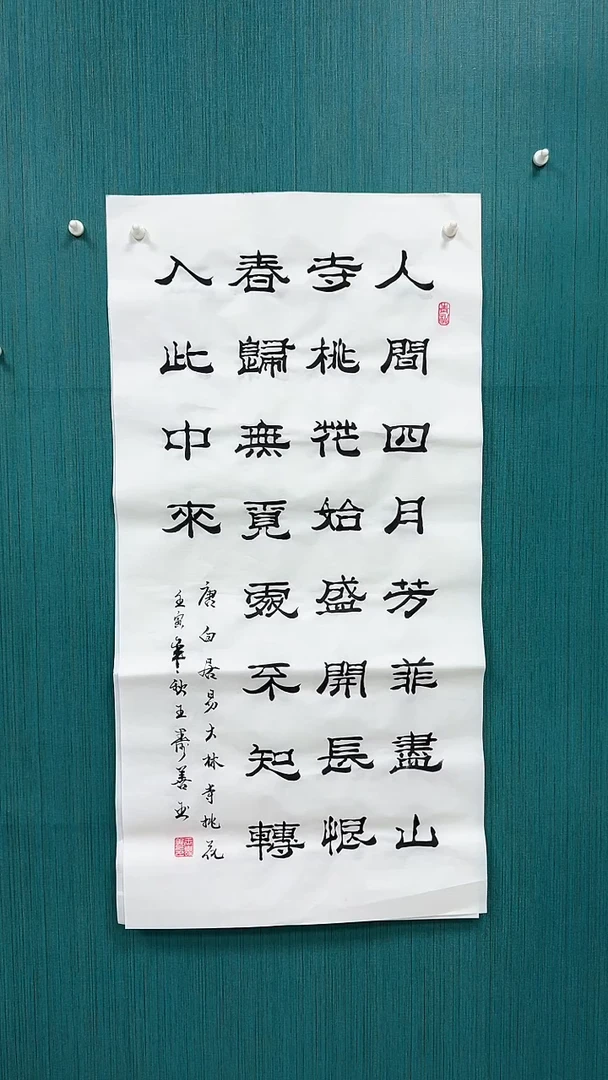 人間四月芳菲盡山
寺桃花始盛開長恨
春歸無覓處不知轉
入此中來
唐白居易大林寺桃花
壬寅年秋王善